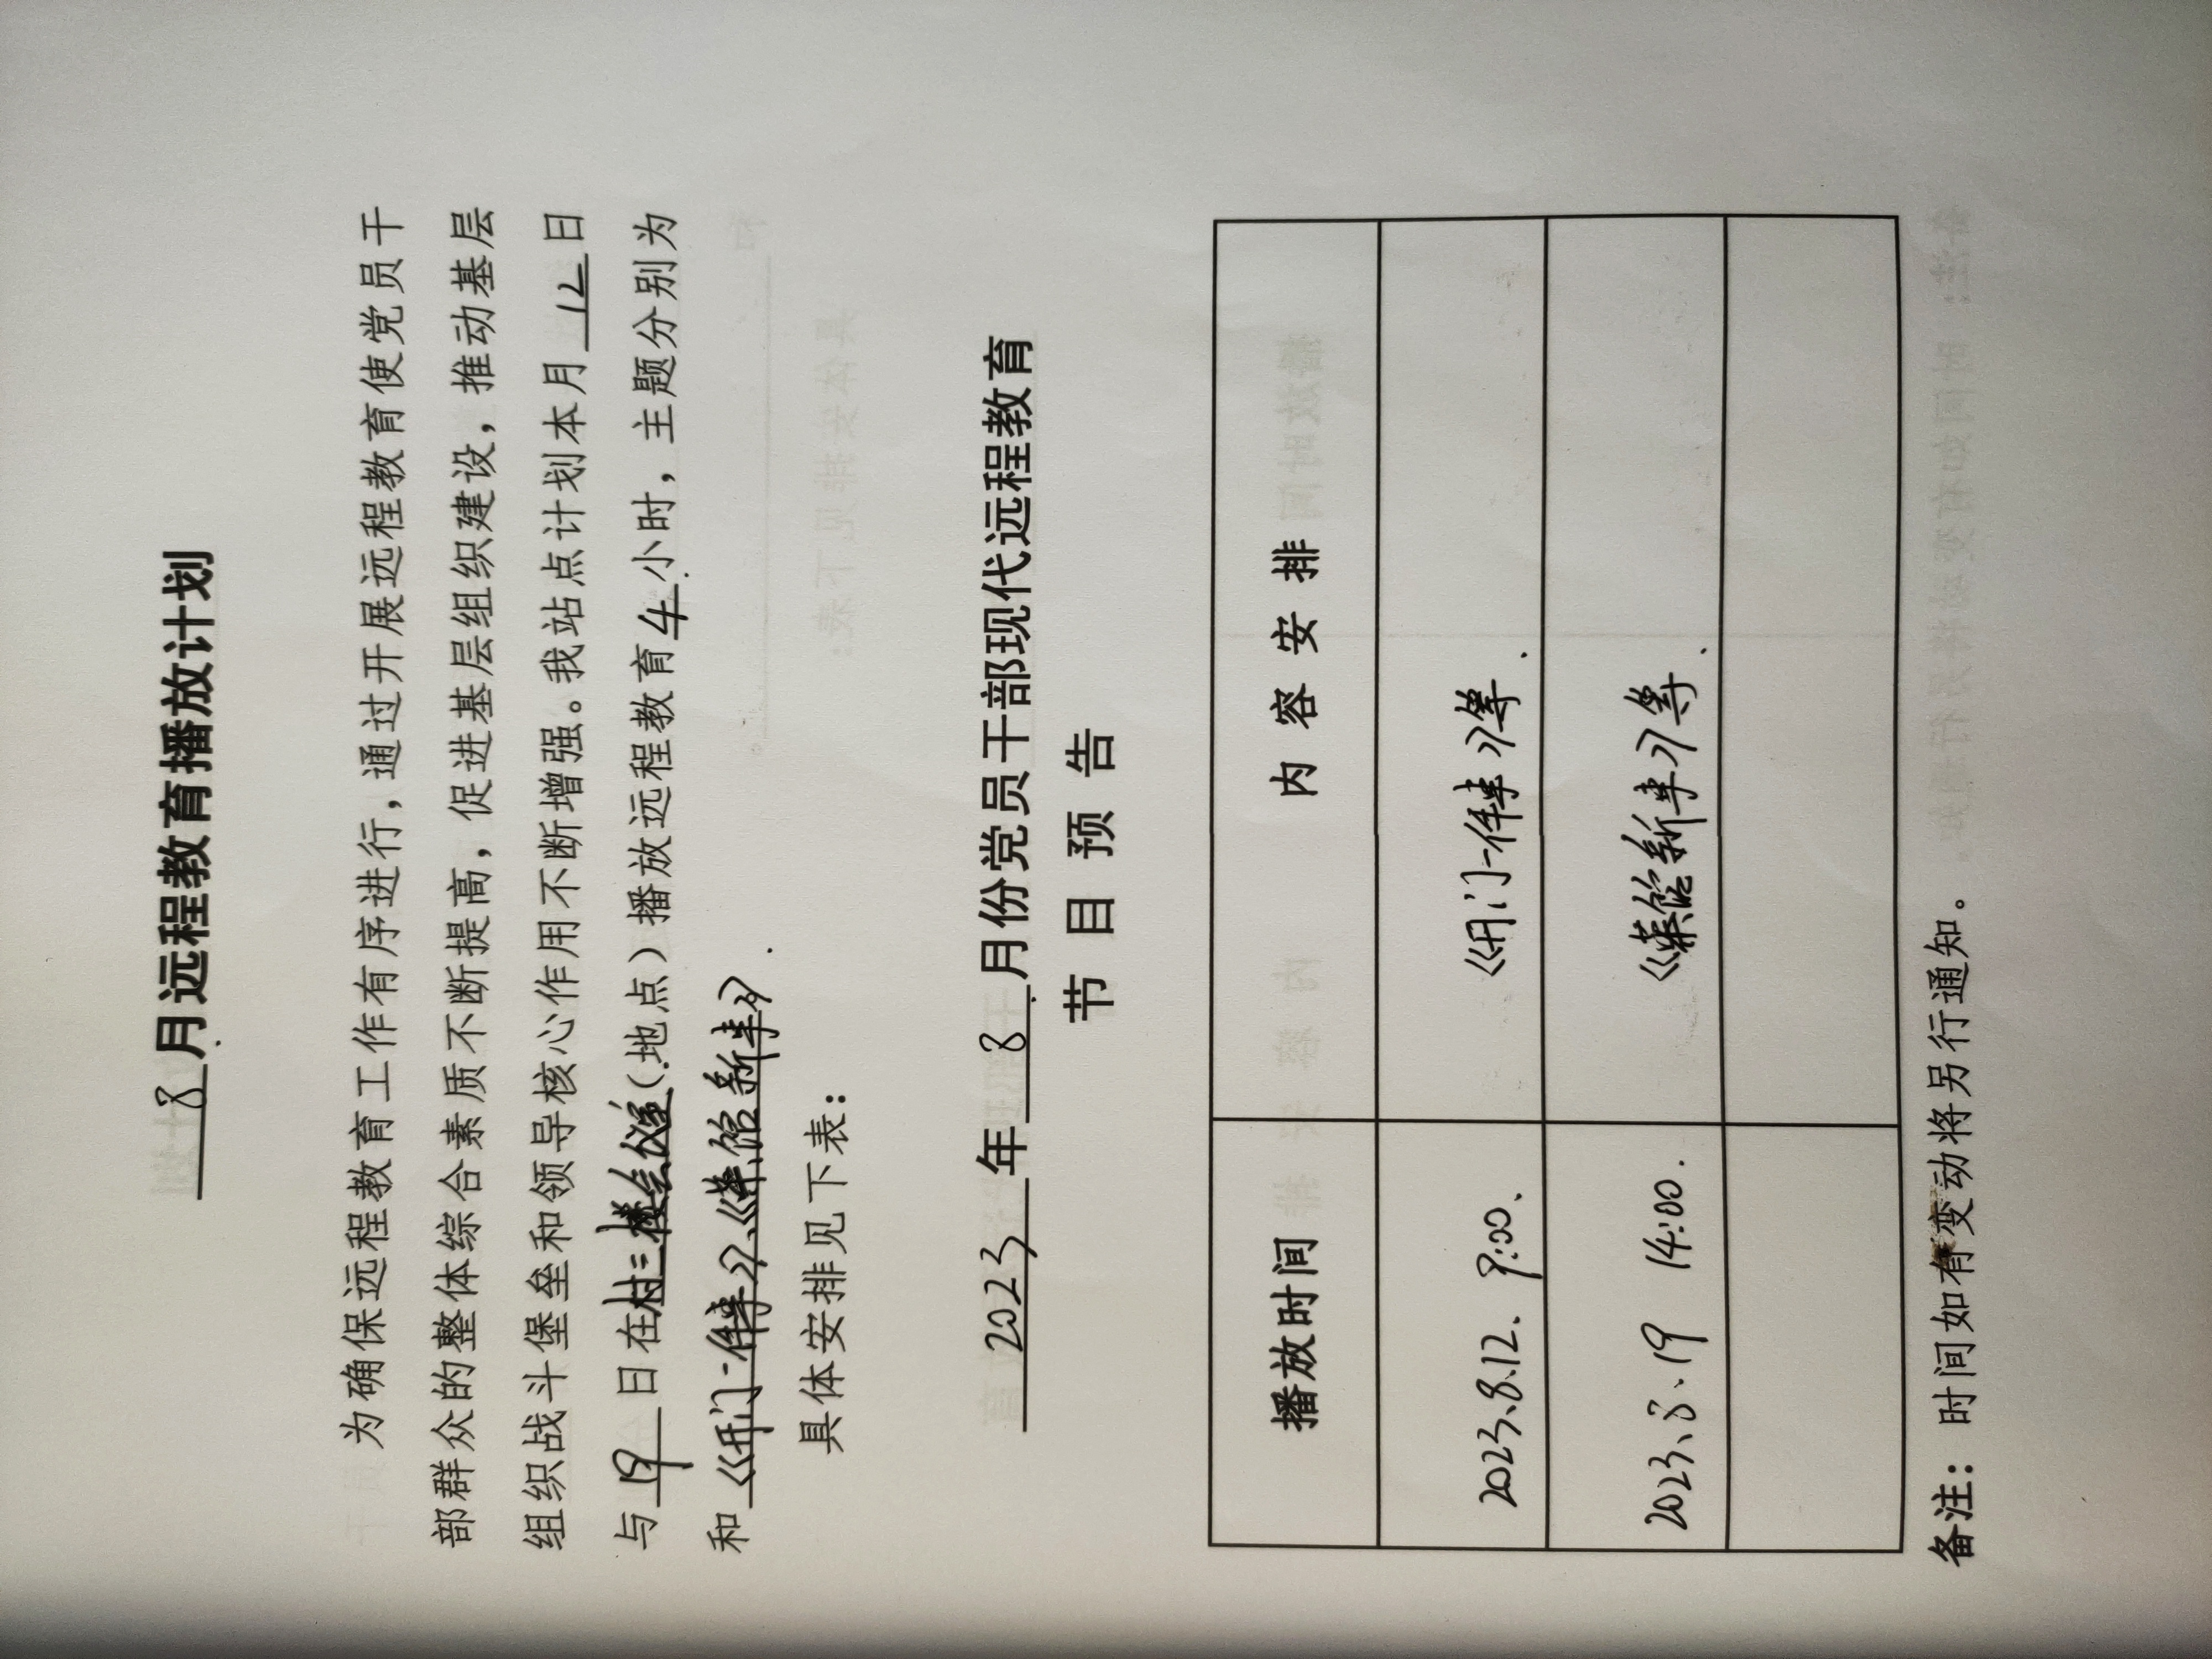 8月远程教育播放计划
为确保远程教育工作有序进行，通过开展远程教育使党员干
部群众的整体综合素质不断提高，促进基层组织建设，推动基层
组织战斗堡垒和领导核心作用不断增强。我站点计划本月 12 日
与 19 日在村三楼会议室（地点）播放远程教育 4 小时，主题分别为
和《开门一件事》、《菜馆新事》.
具体安排见下表：
2023年 8 月份党员干部现代远程教育
节目预告
播放时间 内容安排
2023、8、12、9:00、 《开门一件事》等.
2023、8、19 14:00. 《菜馆新事》等.
备注：时间如有变动将另行通知。